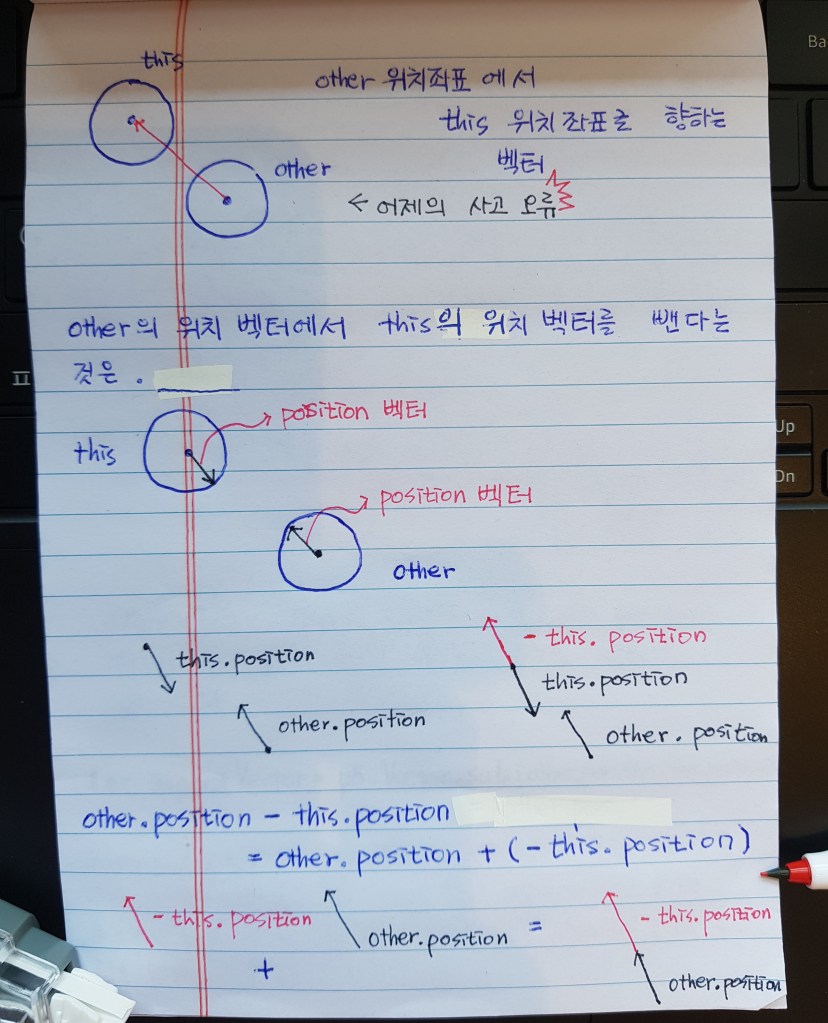 this
other 위치좌표에서
this 위치좌표를 향하는
벡터
other
← 어제의 사고 오류
other의 위치 벡터에서 this의 위치 벡터를 뺀다는
것은.
position 벡터
this
position 벡터
other
- this.position
this.position
this.position
other.position
other.position
other.position - this.position
= other.position + (-this.position)
- this.position
+
other.position
=
- this.position
other.position
Ba
ㅍ
Up
Dn